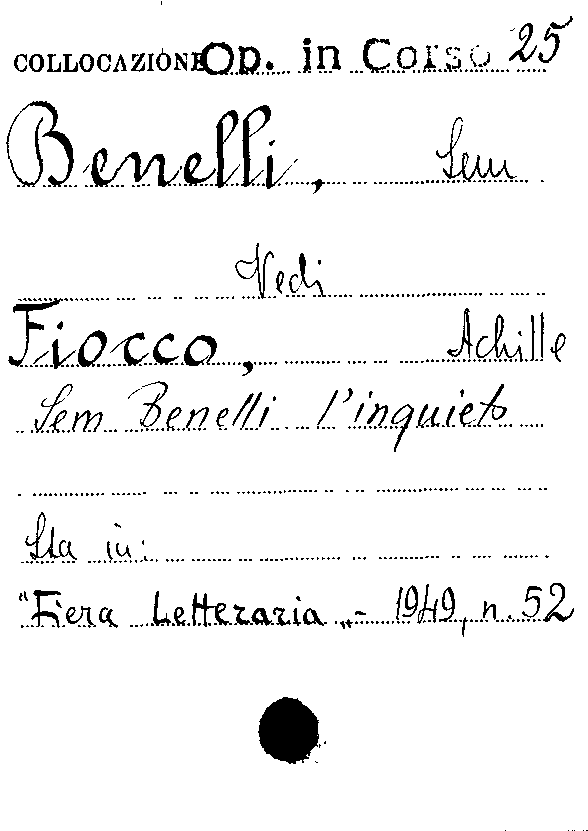 COLLOCAZIONE Op. in Corso 25
Benelli, Sem
Vedi
Fiocco, Achille
Sem Benelli l'inquieto
Sta in:
"Fiera Letteraria„- 1949, n. 52